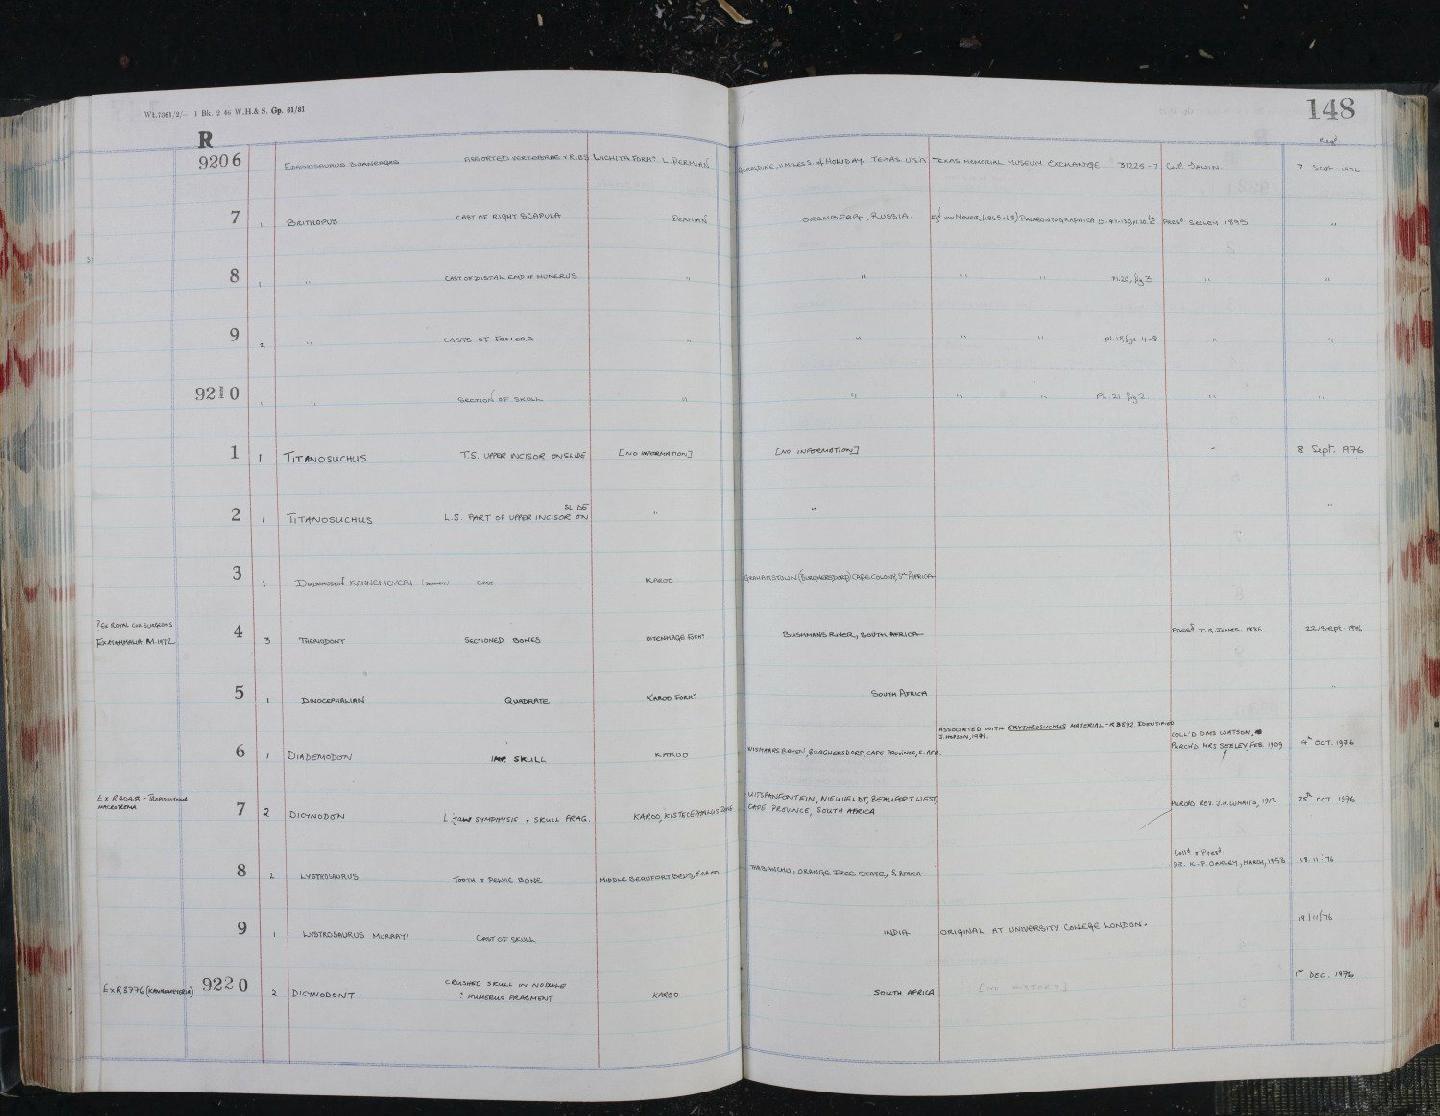 Wt.7361/2/- 1 Bk. 2 46 W.H.& S. Gp. 81/81
148
R
Regd
9206 EDAPHOSAURUS ASSORTED VERTEBRAE & RIBS WICHITA FORMn L. PERMIAN TEXAS. USA TEXAS MEMORIAL MUSEUM EXCHANGE 31225-7 7 Sept 1976
7 1 BRITHOPUS CAST OF RIGHT SCAPULA PERMIAN RUSSIA. PALAEONTOGRAPHICA PRESd SEELEY 1895 "
8 1 " CAST OF DISTAL END OF HUMERUS " " " " Pl.20, fig 3 " "
9 2 " CASTS OF " " " " " "
9210 " SECTION OF SKULL " " " " Pl. 21 fig 2. " "
1 1 TITANOSUCHUS T.S. UPPER INCISOR ON SLIDE [NO INFORMATION] [NO INFORMATION] - 8 Sept. 1976
SLIDE
2 1 TITANOSUCHUS L.S. PART OF UPPER INCISOR ON " " "
3 CAST KAROO GRAHAMSTOWN (BURGHERSDORP) CAPE COLONY, Sth AFRICA
? Ex ROYAL COLL SURGEONS
Ex MAMMALIA M.1972 4 3 THERIODONT SECTIONED BONES UITENHAGE FORMn BUSHMANS RIVER, SOUTH AFRICA PRESd T.R. JONES 22 Sept. 1976
5 1 DINOCEPHALIAN QUADRATE KAROO FORMn SOUTH AFRICA "
ASSOCIATED WITH ERYTHROSUCHUS MATERIAL - R3592 IDENTIFIED
J. HOPSON, 1971.
COLL'D DMS WATSON,
6 1 DIADEMODON SKULL KAROO BURGHERSDORP, CAPE PROVINCE, S. AFR. PURCH'D MRS SEELEY FEB. 1909 4th OCT. 1976
7 2 DICYNODON L JAW SYMPHYSIS + SKULL FRAG. KAROO, CISTECEPHALUS ZONE UITSPANFONTEIN, NIEUVELDT, BEAUFORT WEST,
CAPE PROVINCE, SOUTH AFRICA PURCHD REV. J.H. WHAITS, 1912 25th OCT 1976
Colld & Presd
8 2 LYSTROSAURUS TOOTH & PELVIC BONE MIDDLE BEAUFORT BEDS, KAROO THABANCHU, ORANGE FREE STATE, S. AFRICA DR. K.P. OAKLEY, MARCH, 1953 18.11.76
9 1 LYSTROSAURUS MURRAYI CAST OF SKULL INDIA ORIGINAL AT UNIVERSITY COLLEGE LONDON. 19/11/76
Ex R3776 (KANNEMEYERIA) 9220 2 DICYNODONT CRUSHED SKULL IN NODULE
? HUMERUS FRAGMENT KAROO SOUTH AFRICA [NO HISTORY] 1st DEC. 1976